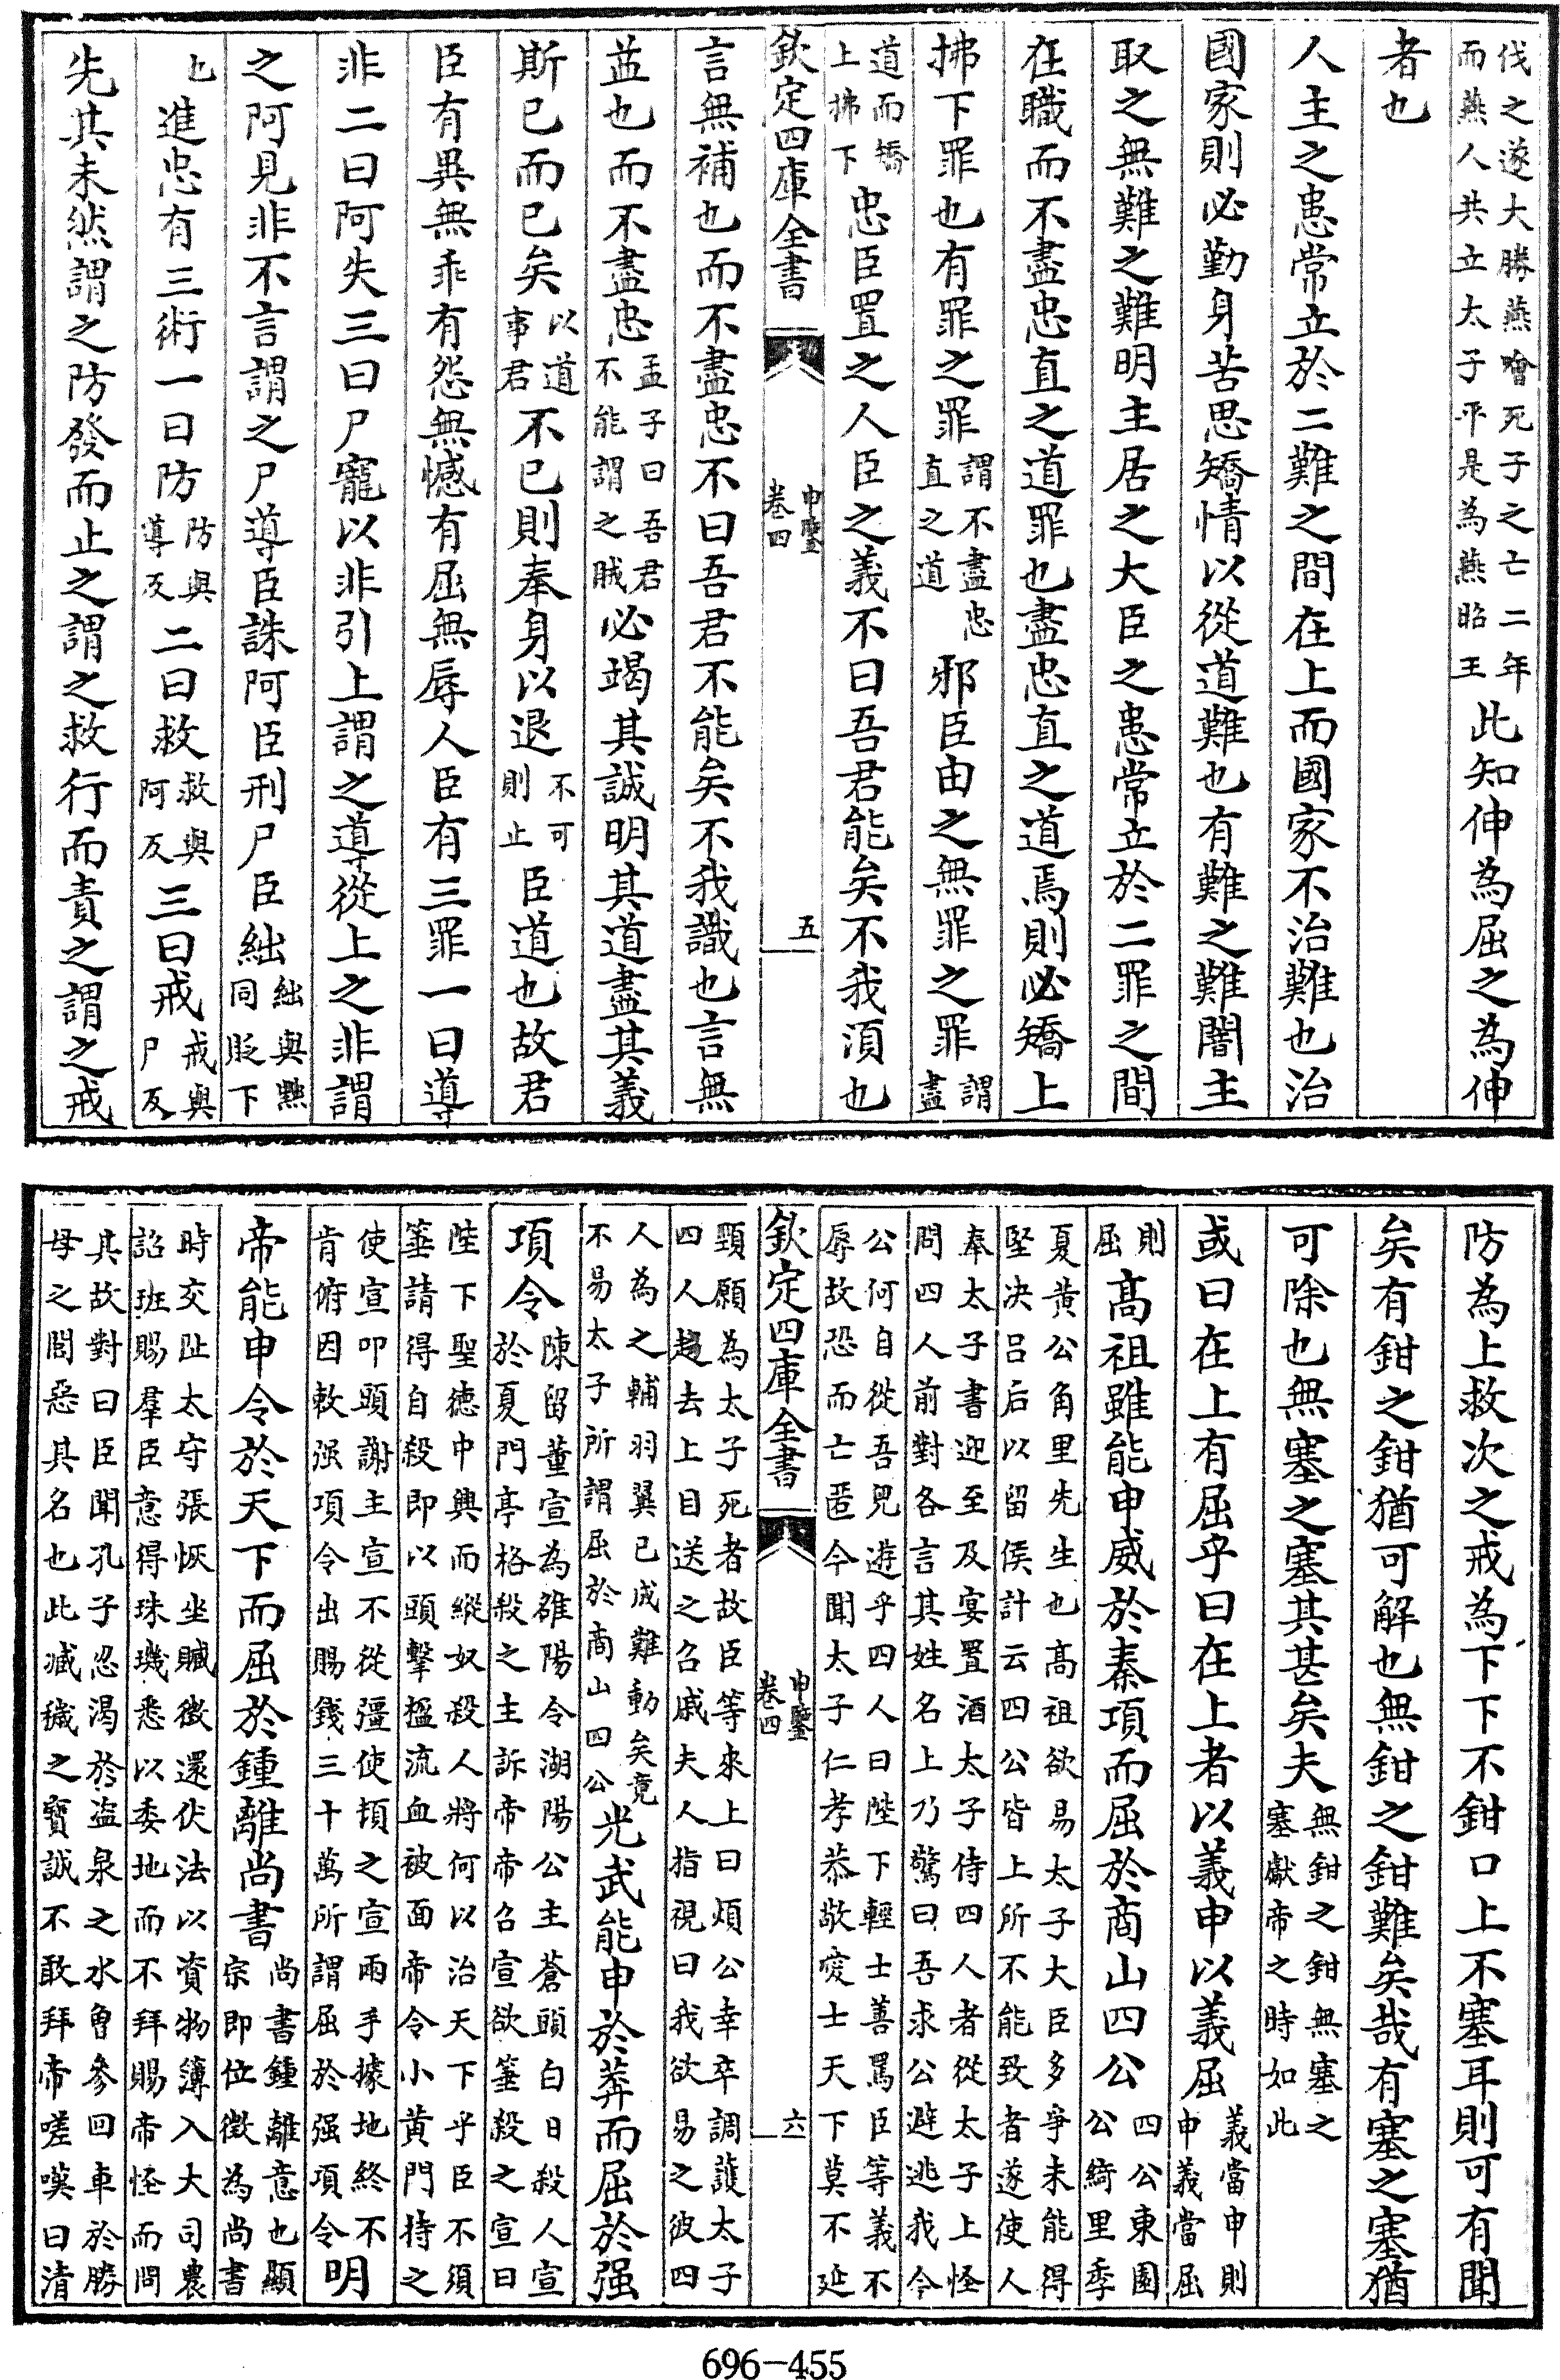 伐之遂大勝燕噲死子之亡二年
而燕人共立太子平是為燕昭王
此知伸為屈之為伸
者也
人主之患常立於二難之間在上而國家不治難也治
國家則必勤身苦思矯情以從道難也有難之難闇主
取之無難之難明主居之大臣之患常立於二罪之間
在職而不盡忠直之道罪也盡忠直之道焉則必矯上
拂下罪也有罪之罪
謂不盡忠
直之道
邪臣由之無罪之罪
謂
盡
欽定四庫全書
申鑒
卷四
五
道而矯
上拂下
忠臣置之人臣之義不曰吾君能矣不我須也
言無補也而不盡忠不曰吾君不能矣不我識也言無
益也而不盡忠
孟子曰吾君
不能謂之賊
必竭其誠明其道盡其義
斯已而已矣
以道
事君
不已則奉身以退
不可
則止
臣道也故君
臣有異無乖有怨無憾有屈無辱人臣有三罪一曰導
非二曰阿失三曰尸寵以非引上謂之導從上之非謂
之阿見非不言謂之尸導臣誅阿臣刑尸臣絀
絀與黜
同貶下
也
進忠有三術一曰防
防與
導反
二曰救
救與
阿反
三曰戒
戒與
尸反
先其未然謂之防發而止之謂之救行而責之謂之戒
防為上救次之戒為下下不鉗口上不塞耳則可有聞
矣有鉗之鉗猶可解也無鉗之鉗難矣哉有塞之塞猶
可除也無塞之塞其甚矣夫
無鉗之鉗無塞之
塞獻帝之時如此
或曰在上有屈乎曰在上者以義申以義屈
義當申則
申義當屈
則
屈
高祖雖能申威於秦項而屈於商山四公
四公東園
公綺里季
夏黃公角里先生也高祖欲易太子大臣多爭未能得
堅決呂后以留侯計云四公皆上所不能致者遂使人
奉太子書迎至及宴置酒太子侍四人者從太子上怪
問四人前對各言其姓名上乃驚曰吾求公避逃我今
公何自從吾兒遊乎四人曰陛下輕士善罵臣等義不
辱故恐而亡匿今聞太子仁孝恭敬愛士天下莫不延
欽定四庫全書
申鑒
卷四
六
頸願為太子死者故臣等來上曰煩公幸卒調護太子
四人趨去上目送之召戚夫人指視曰我欲易之彼四
人為之輔羽翼已成難動矣竟
不易太子所謂屈於商山四公
光武能申於莽而屈於强
項令
陳留董宣為雒陽令湖陽公主蒼頭白日殺人宣
於夏門亭格殺之主訴帝帝召宣欲箠殺之宣曰
陛下聖德中興而縱奴殺人將何以治天下乎臣不須
箠請得自殺即以頭擊楹流血被面帝令小黃門持之
使宣叩頭謝主宣不從彊使頓之宣兩手據地終不
肯俯因敕强項令出賜錢三十萬所謂屈於强項令
明
帝能申令於天下而屈於鍾離尚書
尚書鍾離意也顯
宗即位徵為尚書
時交阯太守張恢坐贓徵還伏法以資物簿入大司農
詔班賜羣臣意得珠璣悉以委地而不拜賜帝怪而問
其故對曰臣聞孔子忍渴於盜泉之水曾參回車於勝
母之閭惡其名也此臧穢之寶誠不敢拜帝嗟嘆曰清
696-455